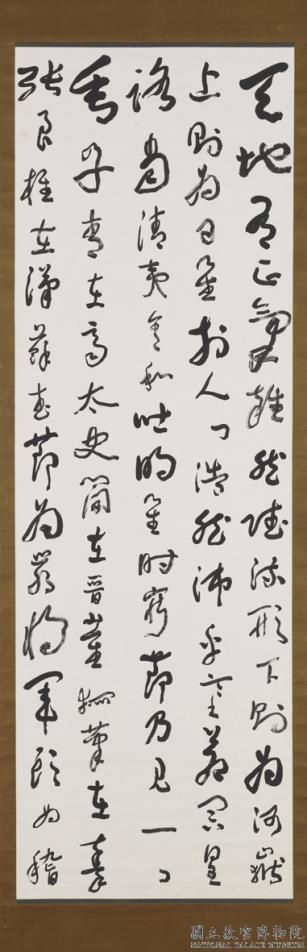 天地有正氣雜然賦流形下則為河嶽
上則為日星於人曰浩然沛乎塞蒼冥皇
路當清夷含和吐明庭時窮節乃見一一
垂丹青在齊太史簡在晉董狐筆在秦
張良椎在漢蘇武節為嚴將軍頭為嵇
國立故宮博物院
NATIONAL PALACE MUSEUM